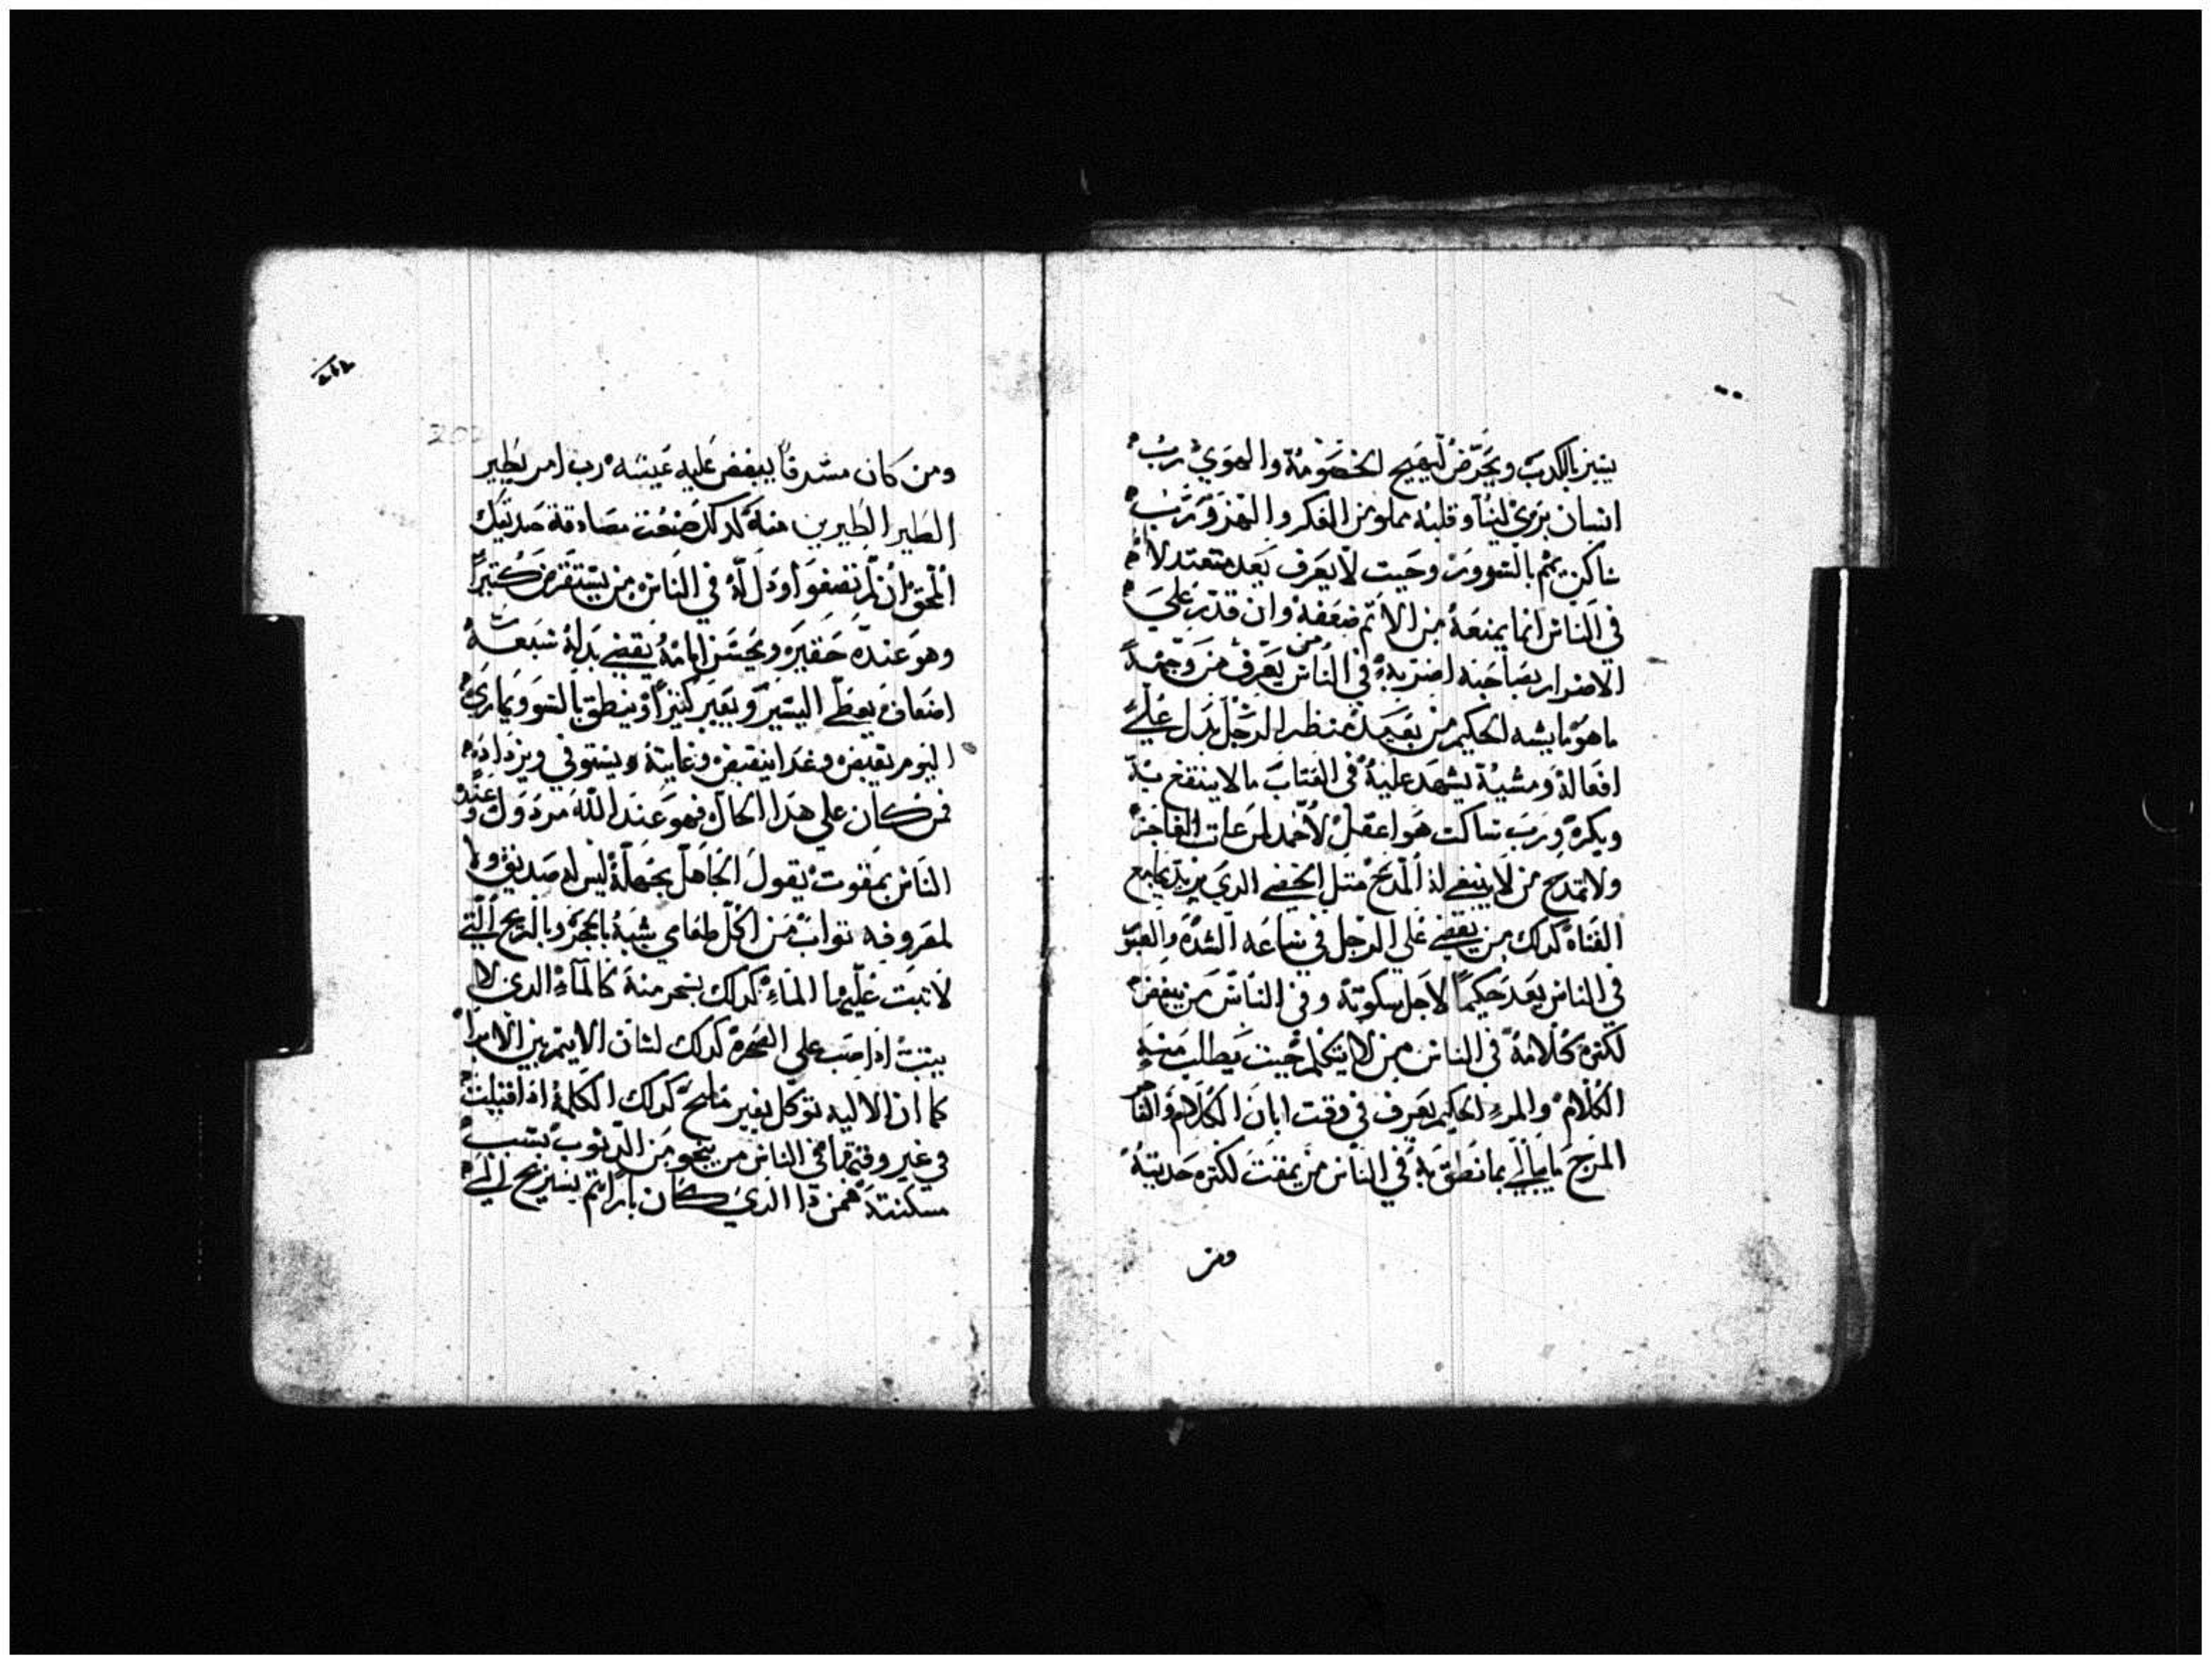 يسير بالكدب ويحرض ليهيج الخصومة والهوي رب
انسان يري لينا وقلبه مملو من الفكر والهزو ورب
ساكن يهم بالسوو وحيت لا يعرف يعد متعتدلا
في الناس انما يمنعه من الاتم ضعفه وان قدر علي
الاضرار بصاحبه اضر به في الناس من يعرف من وجهه
ما هو ما يشه الحكيم من بعيد منظر الرجل يدل علي
افعاله ومشيه يشهد عليه في العتاب ما لا ينتفع به
ويكره ورب ساكت هو اعقل لا تحمد الفاجر
ولا تمدح من لا ينبغي له المدح متل الخصي الدي يريد يجامع
الفتاة كدلك من يقضي علي الرجل في ساعه الشده والعسر
في الناس يعد حكيما لاجل سكوته وفي الناس من يبغض
لكتره كلامه في الناس من لا يتكلم حيت يطلب منه
الكلام والمرء الحكيم يعرف في وقت ابان الكلام والفتا
المرح ما يبالي بما نطق به في الناس من يمقت لكتره حديته
ومن
ومن كان مسرفا يبغض عليه عيشه رب امر يطير
الطير الطيرين منه كدلك صنعت مصادقة صديقك
المحق ان لم تصغو او دل له في الناس من يستقرض كتيرا
وهو عنده حقيره ويحسن انامه يقضي بدله سبعة
اضعاف يعظي اليسير ويعير كتيرا وينطق بالسوو يماري
اليوم تقبض وغدا ينقبض وغايته ويستوفي ويزداده
فمن كان علي هدا الحال فهو عند الله مردول وعند
الناس بمقوت يقول الجاهل بجهله ليس له صديق ولا
لمعروفه تواب من اكل طعامي يشبه بالحجر وبالريح التي
لا تبت عليها الماء كدلك يسخر منه كالماء الدي لا
يتبت ادا صب علي الصخرة كدلك لسان الاتيم بين الابرار
كما ان الاليه توكل بغير ملح كدلك الكلمة ادا قيلت
في غير وقتها في الناس من ينجو من الدنوب بسبب
مسكنته فمن دا الدي كان باراتم يستريح الي
202